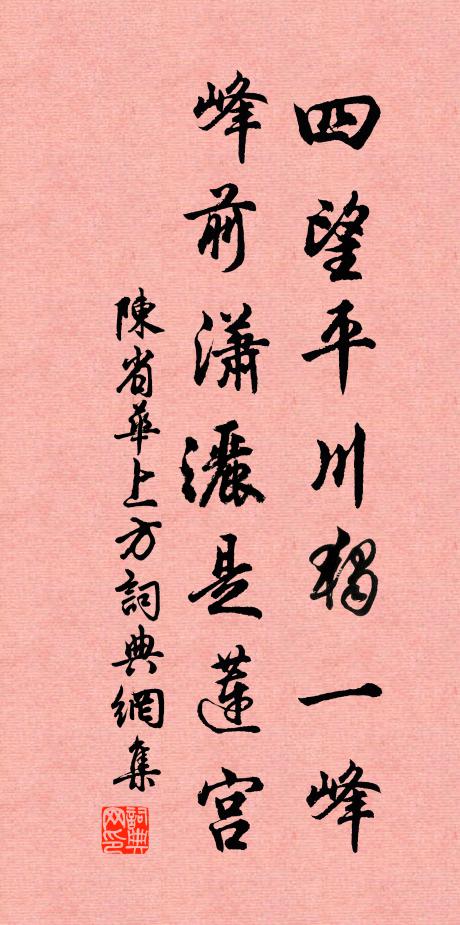 四望平川獨一峰
峰前瀟灑是蓮宮
陳省華上方詞典網集
詞典网印